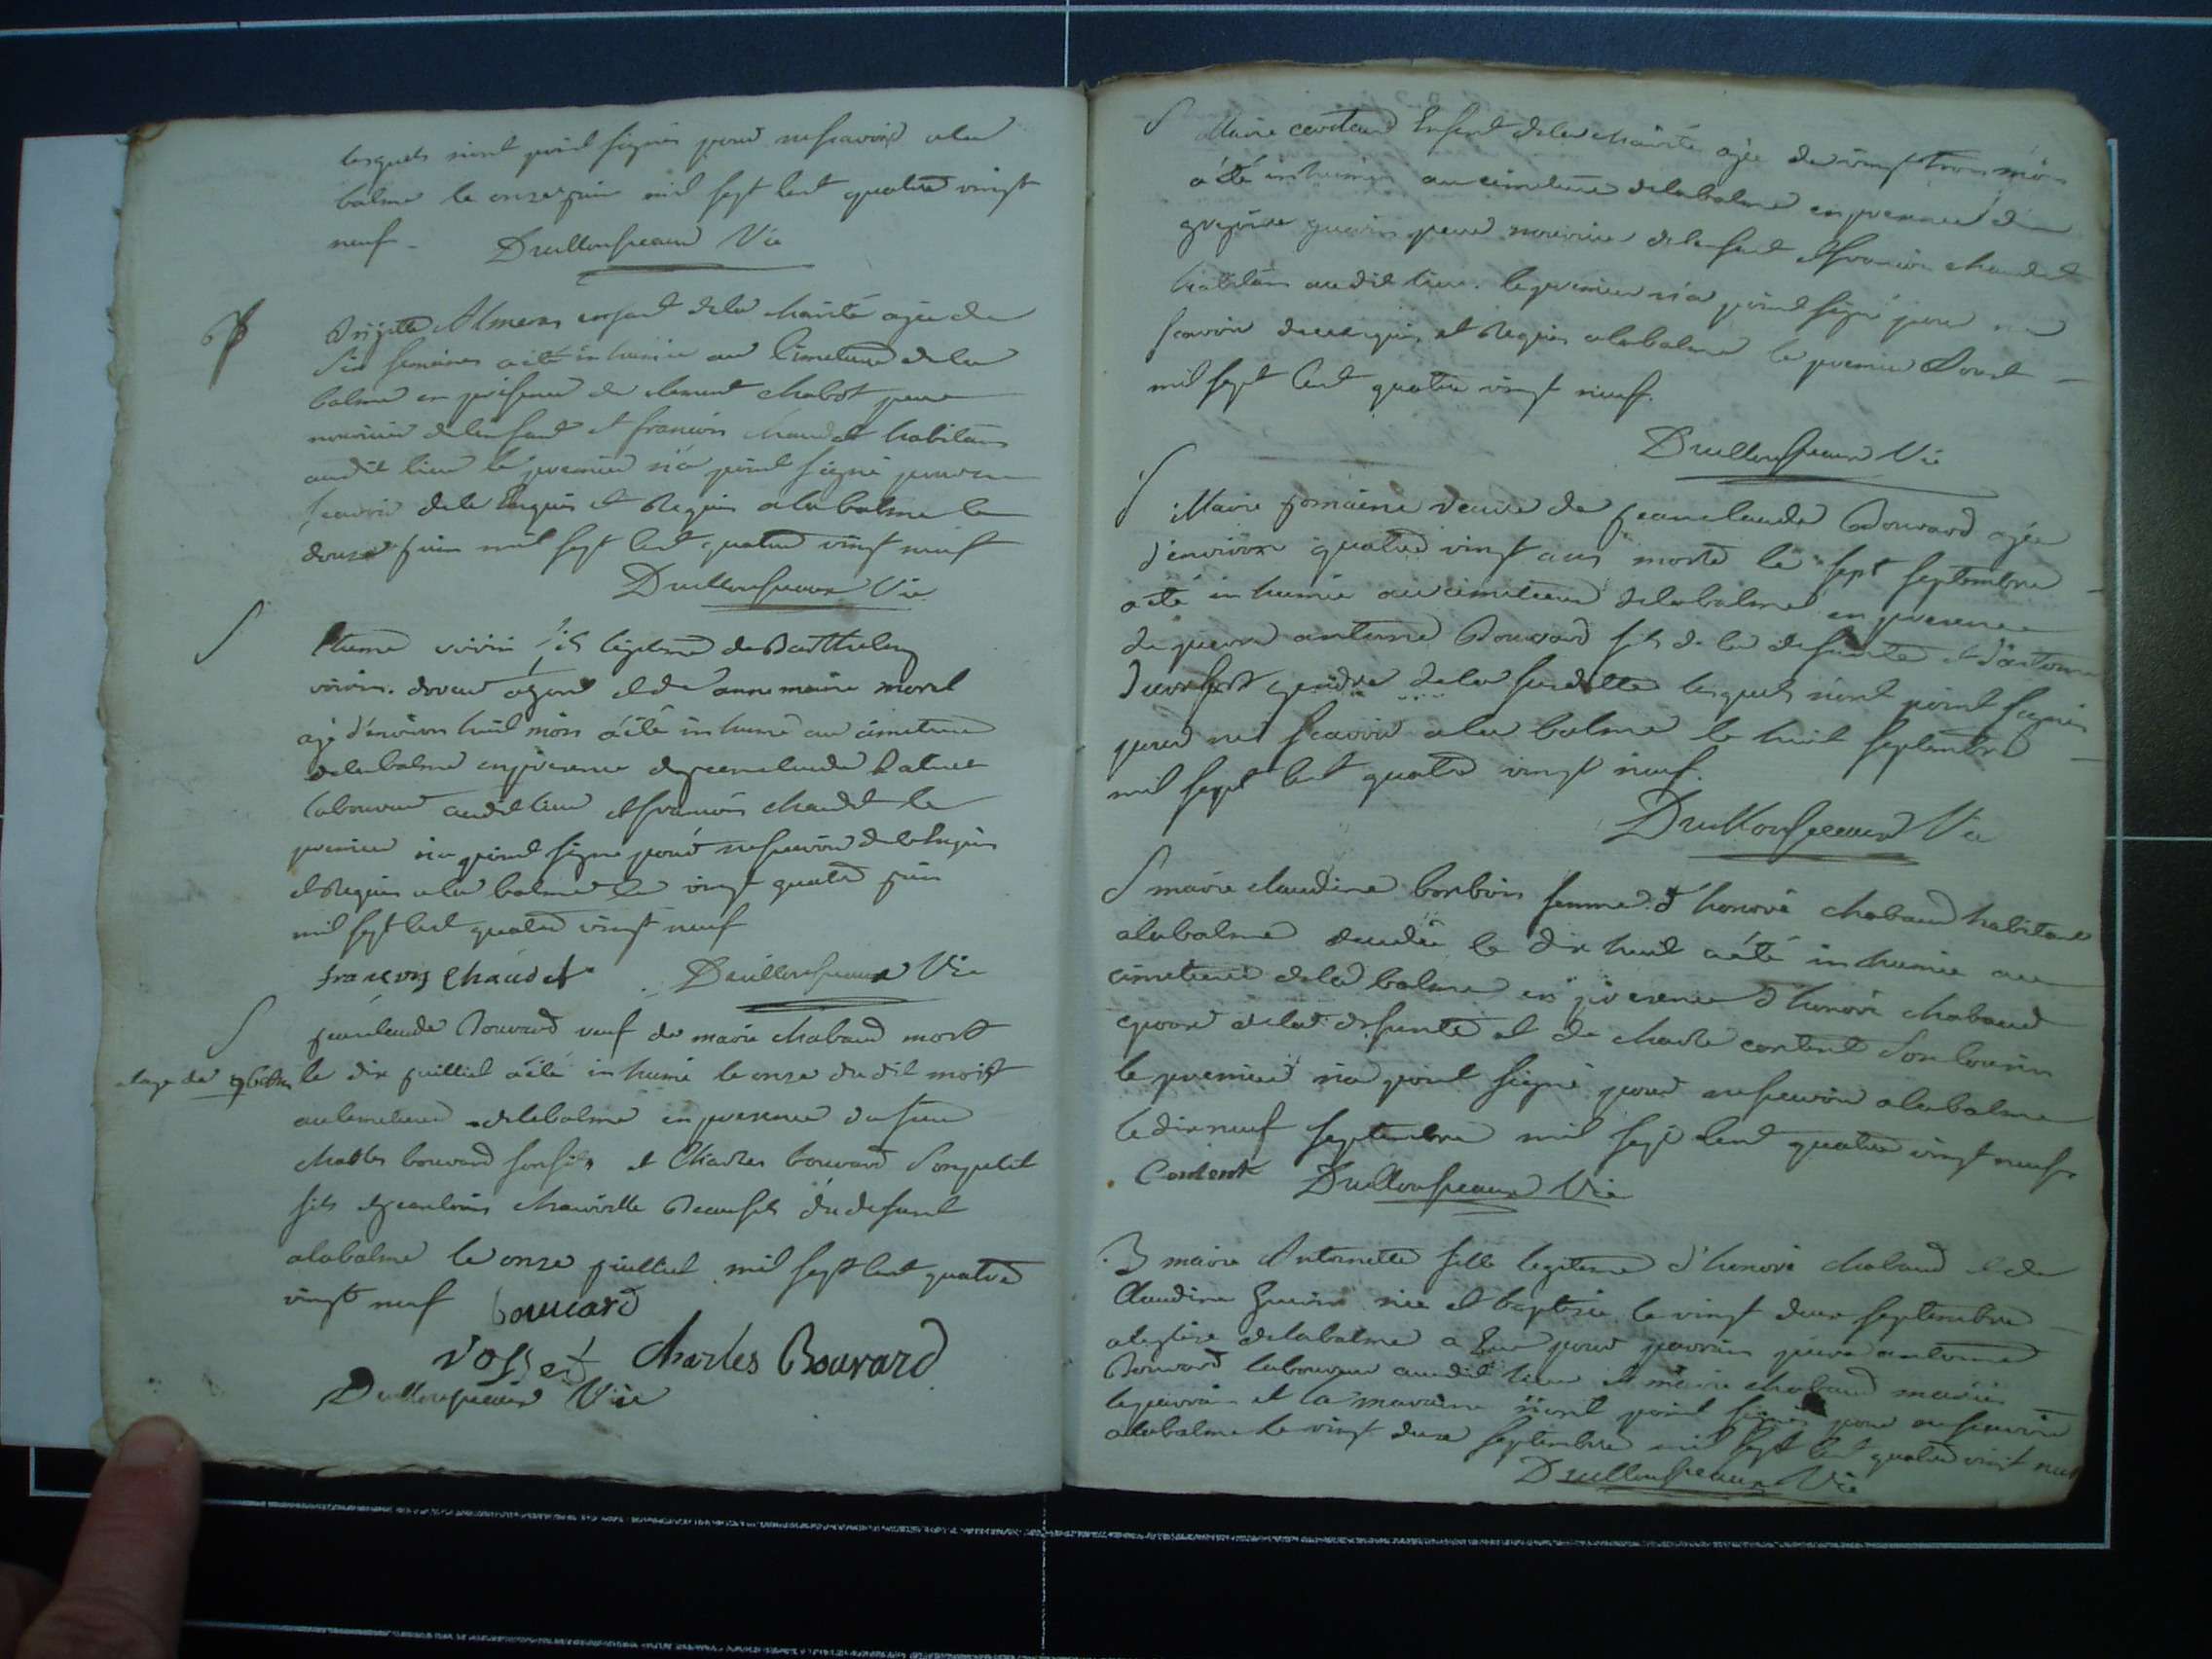 lesquels n'ont point signés pour ne scavoir a la
balme le onze juin mil sept cent quatre vingt
neuf.
Vic
S
enfant de la charité agée de
Six semaines a été inhumée au Cimetiere de la
balme en présence de clement chabot pere
nouricier de l'enfant et francois chaudet habitans
audit lieu le premier n'a point signé pour ne
scavoir de ce Enquis et Requis a la balme le
douze juin mil sept cent quatre vingt neuf
Vic
S
fils légitime de Barthelemy
et de anne marie morel
agé d'environ huit mois a été inhumé au cimetiere
de la balme en presence de jeanclaude
laboureur audit lieu et francois chaudet le
premier n'a point signé pour ne scavoir de ce Enquis
et Requis a la balme le vingt quatre juin
mil sept cent quatre vingt neuf
françois Chaudet Vic
S
jeanclaude Bouvard veuf de marie chabaud mort
a l'age de le dix juilliet a été inhumé le onze du dit mois
au Cimetiere de la balme en presence du sieur
charles bouvard son fils et Charles bouvard son petit
fils et jeanlouis Beaufils du defunt
a la balme le onze juilliet mil sept cent quatre
vingt neuf bouvard
vosset Charles Bouvard
Vic
S Marie Enfant de la charité agée de vingt trois mois
a été inhumée au cimetiere de la balme en presence de
gregoire guerin pere nouricier de l'enfant et francois chaudet
habitans audit lieu. le premier n'a point signé pour ne
scavoir de ce enquis et Requis a la balme le premier Aoust
mil sept Cent quatre vingt neuf.
Vic
S
Marie veuve de jeanclaude Bouvard agée
d'environ quatre vingt ans morte le sept septembre
a été inhumée au cimetiere de la balme en presence
de pierre antoine Bouvard fils de la defunte et d'antoine
gendre de la susditte lesquels n'ont point signés
pour ne scavoir a la balme le huit septembre
mil sept cent quatre vingt neuf.
Vic
S marie claudine bonbon femme d'honoré chabaud habitant
a la balme decedée le dix huit a été inhumée au
cimetiere de la balme en presence d'honoré chabaud
epoux de la defunte et de charle content son Cousin
le premier n'a point signé pour ne scavoir a la balme
le dix neuf septembre mil sept cent quatre vingt neuf.
Content Vic
B marie Antoinette fille legitime d'honoré chabaud et de
Claudine Guerin née et baptisée le vingt deux septembre
a l'eglise de la balme a Eu pour parrain pierre antoine
Bouvard laboureur audit lieu et marie chabaud
le parrain et la marraine n'ont point signés pour ne scavoir
a la balme le vingt deux septembre mil sept cent quatre vingt neuf
Vic